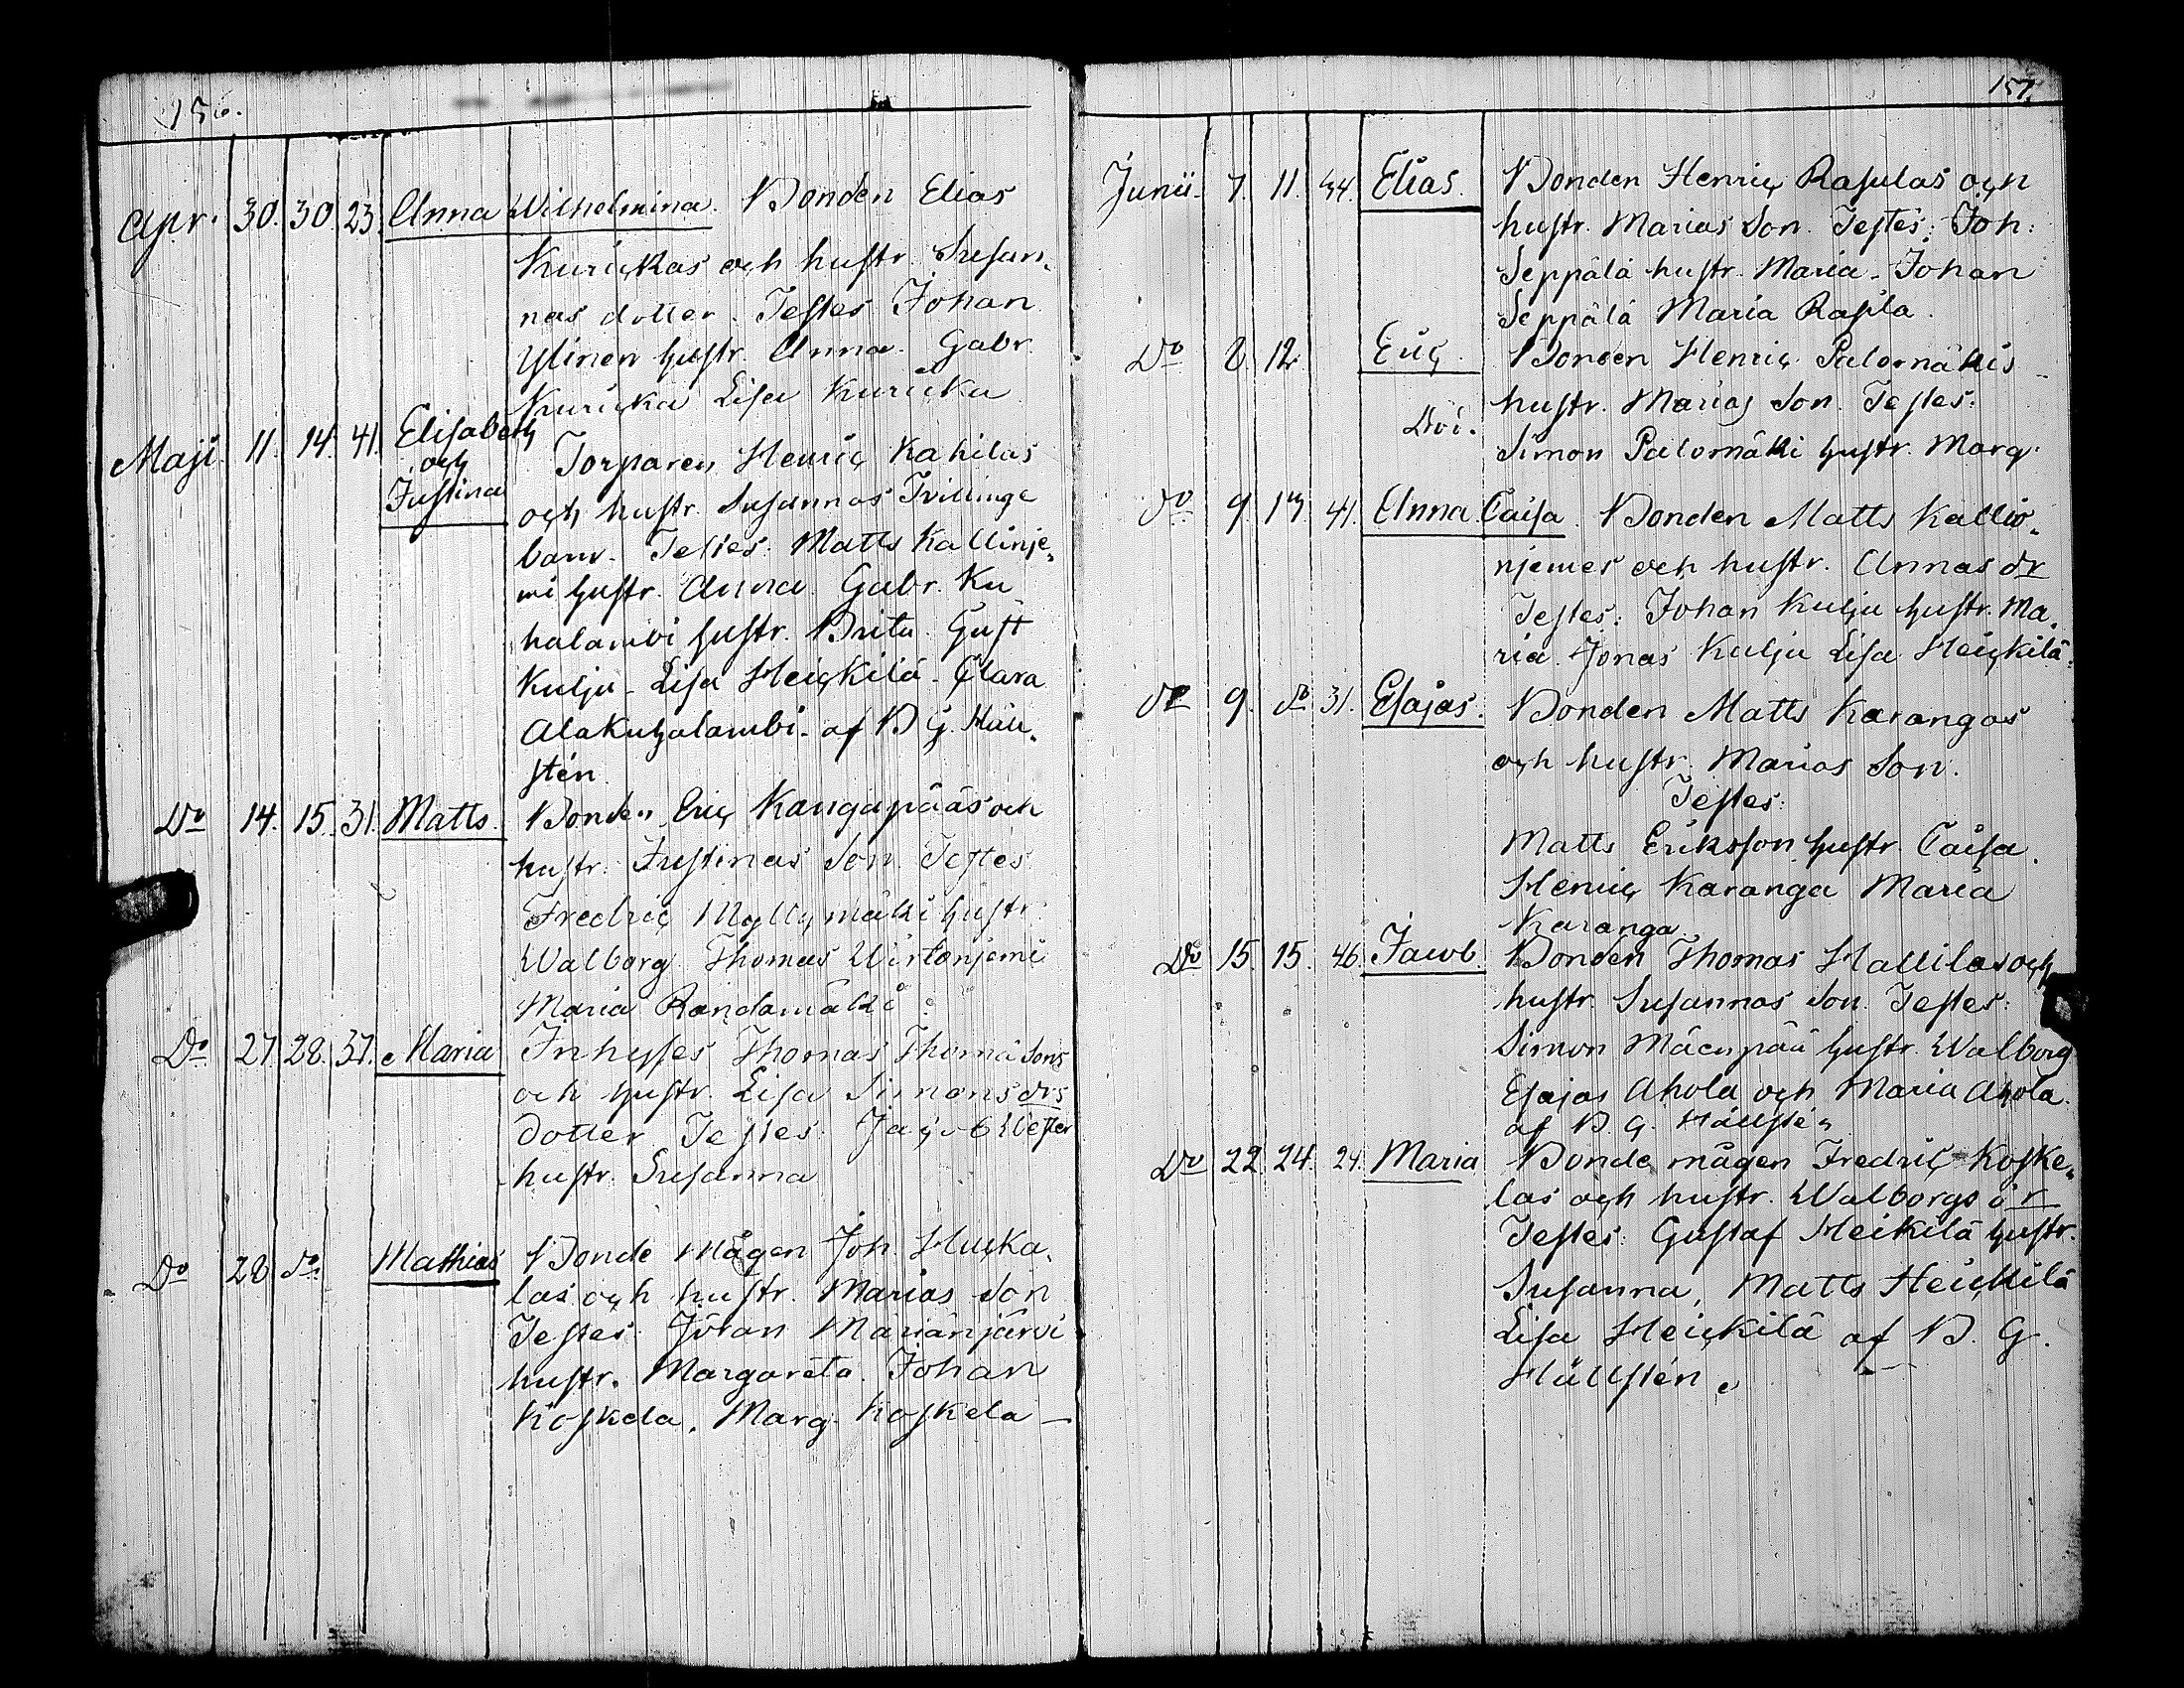 156.
Apr. 30. 30. 23. Anna Wilhelmina. Bonden Elias
Kurickas och hustr. Susan-
nas dotter. Testes Johan
Ylinen hustr. Anna. Gabr.
Kuricka Lisa Kuricka
Maji 11. 14. 41. Elisabeth
och
Justina
Torparen Henric Kahilas
och hustr. Susannas Tvillinge
barn. Testes. Matts Kallinje-
mi hustr. Anna. Gabr. Ku
halambi hustr. Brita. Gust
Kulju - Lisa Heickilä - Clara
Alakuhalambi. af B G. Häll-
stén.
Do 14. 15. 31. Matts. Bonden Eric Kangapääs och
hustr. Justinas Son. Testes
Fredric Myllymäki hustr.
Walborg Thomas Wirtanjemi
Maria Randamäki.
Do 27. 28. 37. Maria Inhyses Thomas Thomä Sons
och hustr. Lisa Simons drs
Dotter Testes. Jacob Wester
hustr. Susanna
Do 28 do. Mathias Bonde Mågen Joh. Hucka-
las och hustr. Marias Son
Testes. Johan Marianjärvi
hustr. Margareta. Johan
Koskela. Marg. Koskela —
157.
Junii. 7. 11. 44. Elias. Bonden Henric Rasulas och
hustr. Marias Son. Testes: Joh:
Seppälä hustr. Maria - Johan
Seppälä Maria Rasila.
Do 8. 12. Eric. Bonden Henric Palomäkis
hustr. Marias Son. Testes:
Simon Palomäki hustr. Marg.
do 9. 41. Anna Caisa. Bonden Matts Kallio-
njemes och hustr. Annas dr
Testes: Johan Kulju hustr. Ma-
ria. Jonas Kulju Lisa Heickilä.
do 9. do 31. Esajas. Bonden Matts Karangas
och hustr. Marias Son.
Testes:
Matts Eriksson hustr. Caisa.
Henric Karanga Maria
Karanga.
Do 15. 15. 46. Jacob. Bonden Thomas Hallilas och
hustr. Susannas Son. Testes:
Simon Mäenpää hustr. Walborg
Esajas Ahola och Maria Ahola.
af B. G. Hällstén
Do 22. 24. 24. Maria Bonde mågen Fredric Koske-
las och hustr. Walborgs dr
Testes: Gustaf Heikilä hustr.
Susanna, Matts Heickilä
Lisa Heickilä af B. G.
Hällstén.